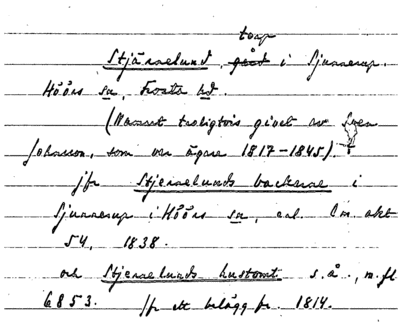 torp
Stjärnelund, gård i Sjunnerup.
Höörs sn, Frosta hd.
(Namnet troligtvis givet av Sven
Johansson, som var ägare 1817-1845).
jfr Stjernelunds backene i
Sjunnerup i Höörs sn, enl. Lm. akt
54, 1838.
och Stjernelunds hustomt s.å., m.fl.
6853. /fr ett belägg fr. 1814.